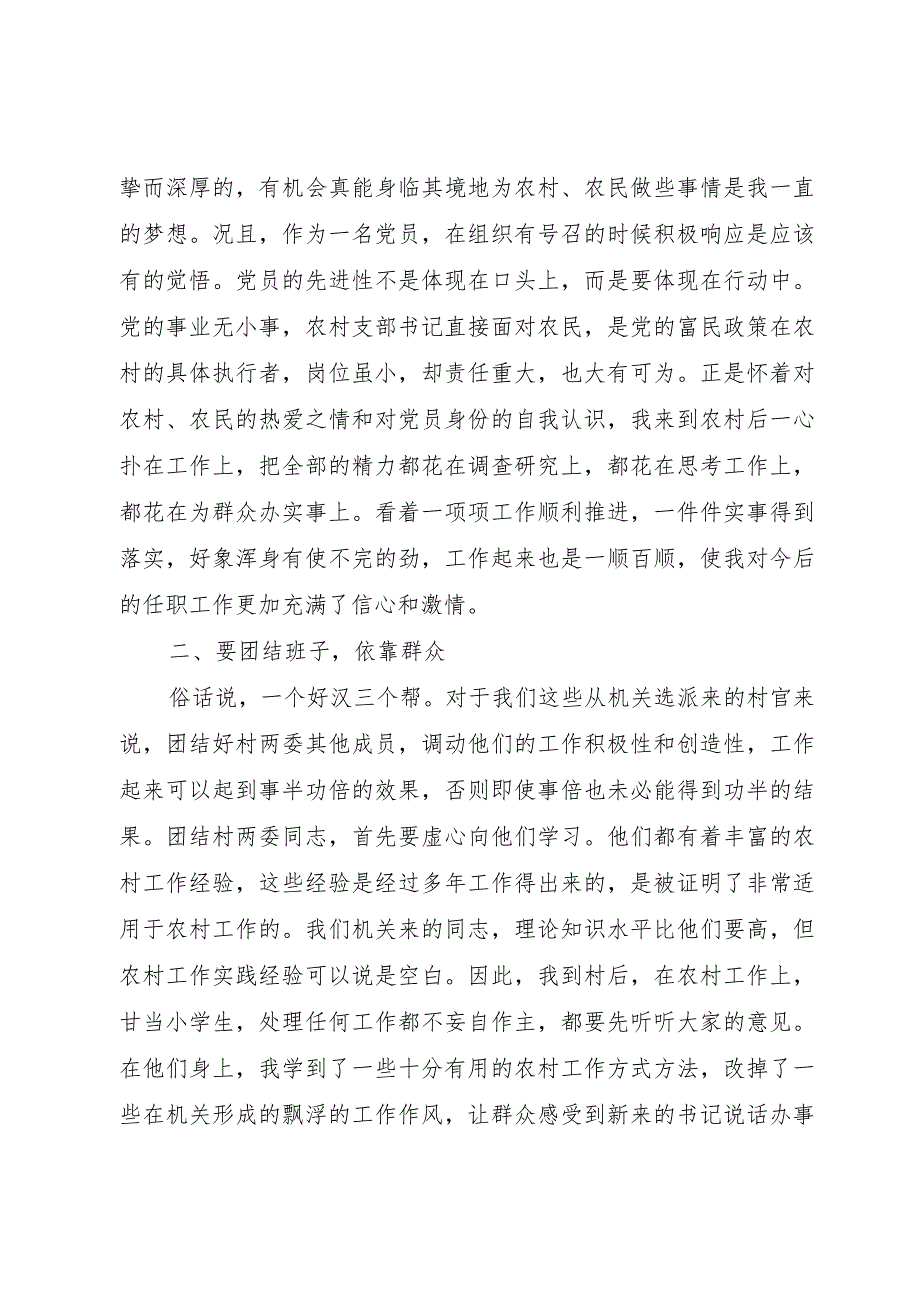 挚而深厚的，有机会真能身临其境地为农村、农民做些事情是我一直
的梦想。况且，作为一名党员，在组织有号召的时候积极响应是应该
有的觉悟。党员的先进性不是体现在口头上，而是要体现在行动中。
党的事业无小事，农村支部书记直接面对农民，是党的富民政策在农
村的具体执行者，岗位虽小，却责任重大，也大有可为。正是怀着对
农村、农民的热爱之情和对党员身份的自我认识，我来到农村后一心
扑在工作上，把全部的精力都花在调查研究上，都花在思考工作上，
都花在为群众办实事上。看着一项项工作顺利推进，一件件实事得到
落实，好象浑身有使不完的劲，工作起来也是一顺百顺，使我对今后
的任职工作更加充满了信心和激情。
二、要团结班子，依靠群众
俗话说，一个好汉三个帮。对于我们这些从机关选派来的村官来
说，团结好村两委其他成员，调动他们的工作积极性和创造性，工作
起来可以起到事半功倍的效果，否则即使事倍也未必能得到功半的结
果。团结村两委同志，首先要虚心向他们学习。他们都有着丰富的农
村工作经验，这些经验是经过多年工作得出来的，是被证明了非常适
用于农村工作的。我们机关来的同志，理论知识水平比他们要高，但
农村工作实践经验可以说是空白。因此，我到村后，在农村工作上，
甘当小学生，处理任何工作都不妄自作主，都要先听听大家的意见。
在他们身上，我学到了一些十分有用的农村工作方式方法，改掉了一
些在机关形成的飘浮的工作作风，让群众感受到新来的书记说话办事